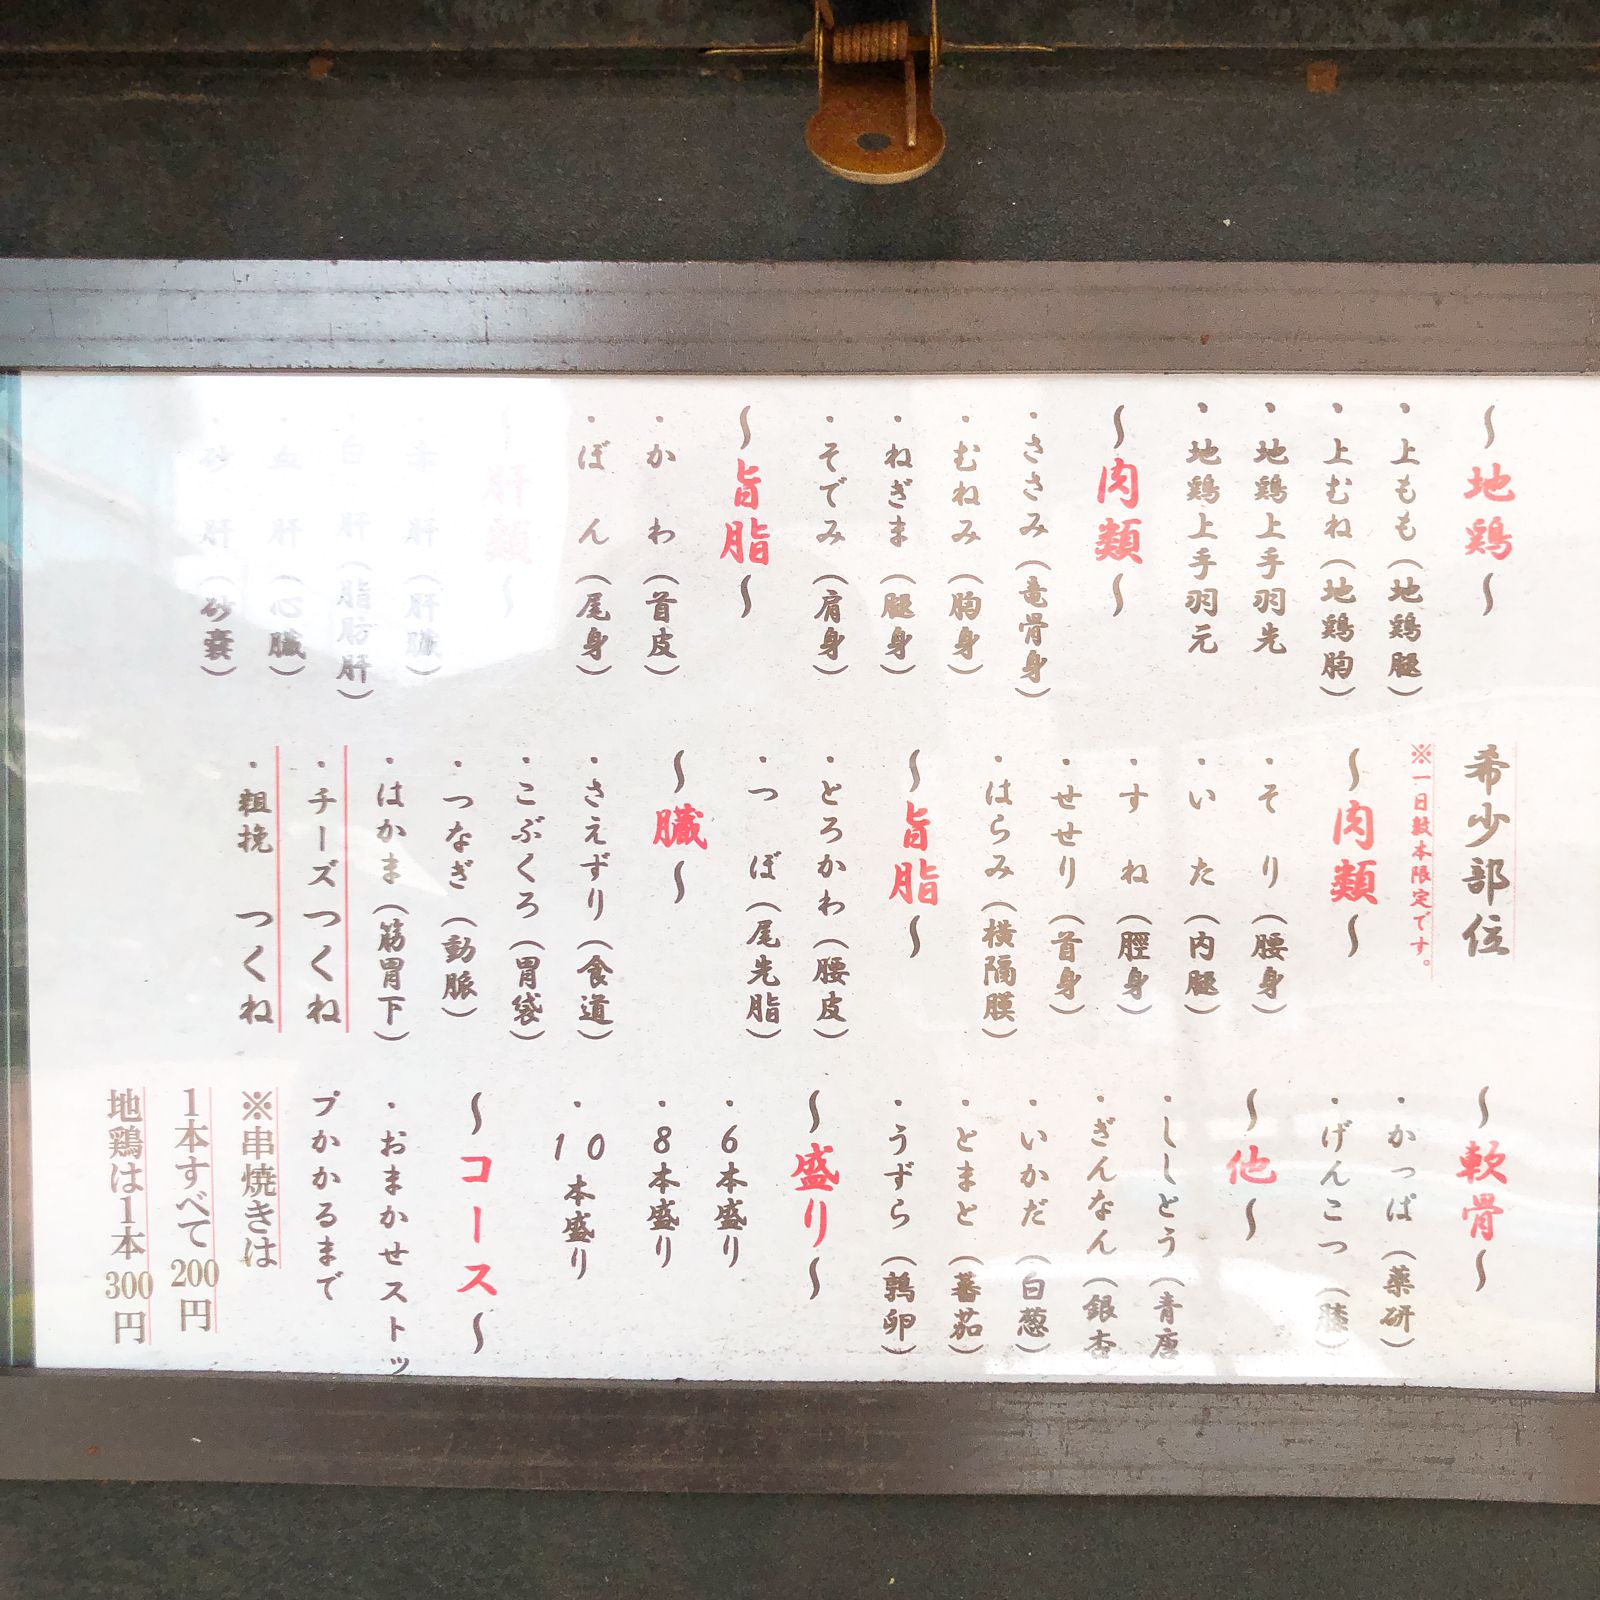 ～地鶏～
・上もも（地鶏腿）
・上むね（地鶏胸）
・地鶏上手羽先
・地鶏上手羽元
～肉類～
・ささみ（竜骨身）
・むねみ（胸身）
・ねぎま（腿身）
・そでみ（肩身）
～旨脂～
・かわ（首皮）
・ぼん（尾身）
～肝類～
・赤肝（肝臓）
・白肝（脂肪肝）
・血肝（心臓）
・砂肝（砂嚢）
希少部位
※一日数本限定です。
～肉類～
・そり（腰身）
・いた（内腿）
・すね（脛身）
・せせり（首身）
・はらみ（横隔膜）
～旨脂～
・とろかわ（腰皮）
・つぼ（尾先脂）
～臓～
・さえずり（食道）
・こぶくろ（胃袋）
・つなぎ（動脈）
・はかま（筋胃下）
・チーズつくね
・粗挽つくね
～軟骨～
・かっぱ（薬研）
・げんこつ（膝）
～他～
・ししとう（青唐
・ぎんなん（銀杏
・いかだ（白葱）
・とまと（蕃茄）
・うずら（鶉卵）
～盛り～
・6本盛り
・8本盛り
・10本盛り
～コース～
・おまかせストッ
プかかるまで
※串焼きは
1本すべて200円
地鶏は1本300円